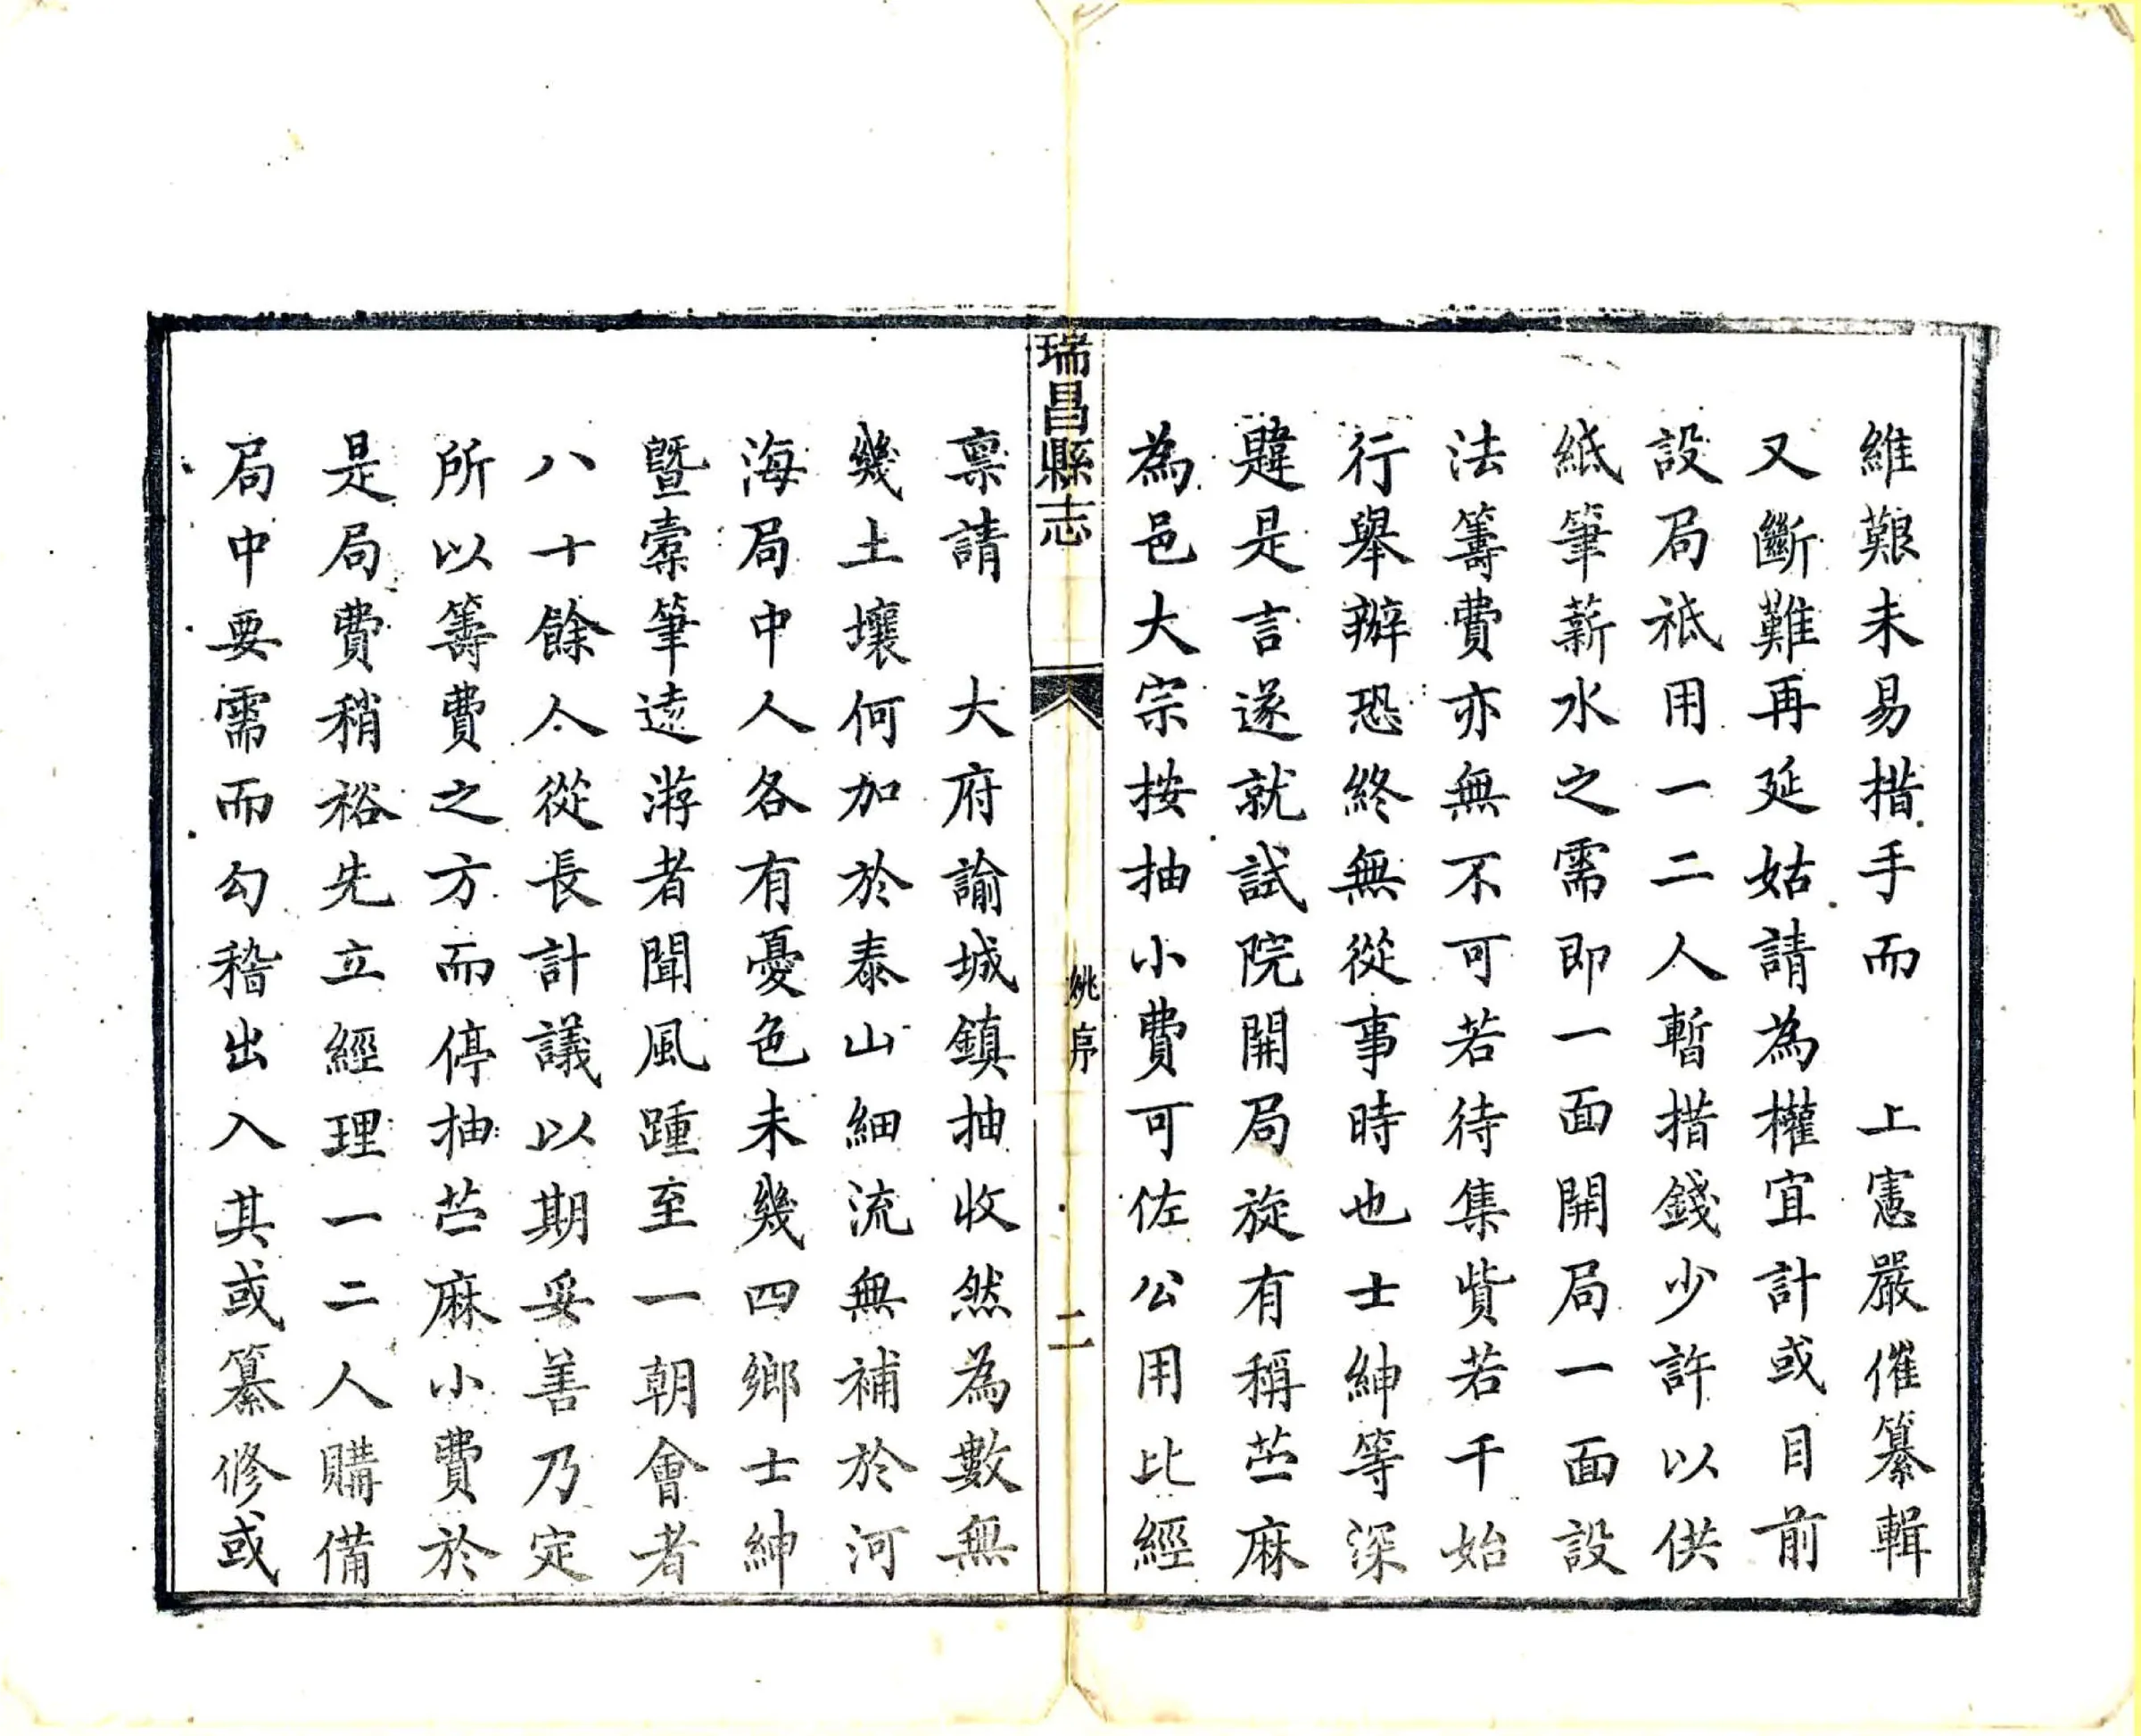 維艱未易措手而　上憲嚴催纂輯
又斷難再延姑請為權宜計或目前
設局祇用一二人暫措錢少許以供
紙筆薪水之需即一面開局一面設
法籌費亦無不可若待集貲若干始
行舉辦恐終無從事時也士紳等深
韙是言遂就試院開局旋有稱苎麻
為邑大宗按抽小費可佐公用比經
瑞昌縣志
姚序
二
禀請　大府諭城鎮抽收然為數無
幾土壤何加於泰山細流無補於河
海局中人各有憂色未幾四鄉士紳
暨橐筆遠游者聞風踵至一朝會者
八十餘人從長計議以期妥善乃定
所以籌費之方而停抽苎麻小費於
是局費稍裕先立經理一二人購備
局中要需而勾稽出入其或纂修或